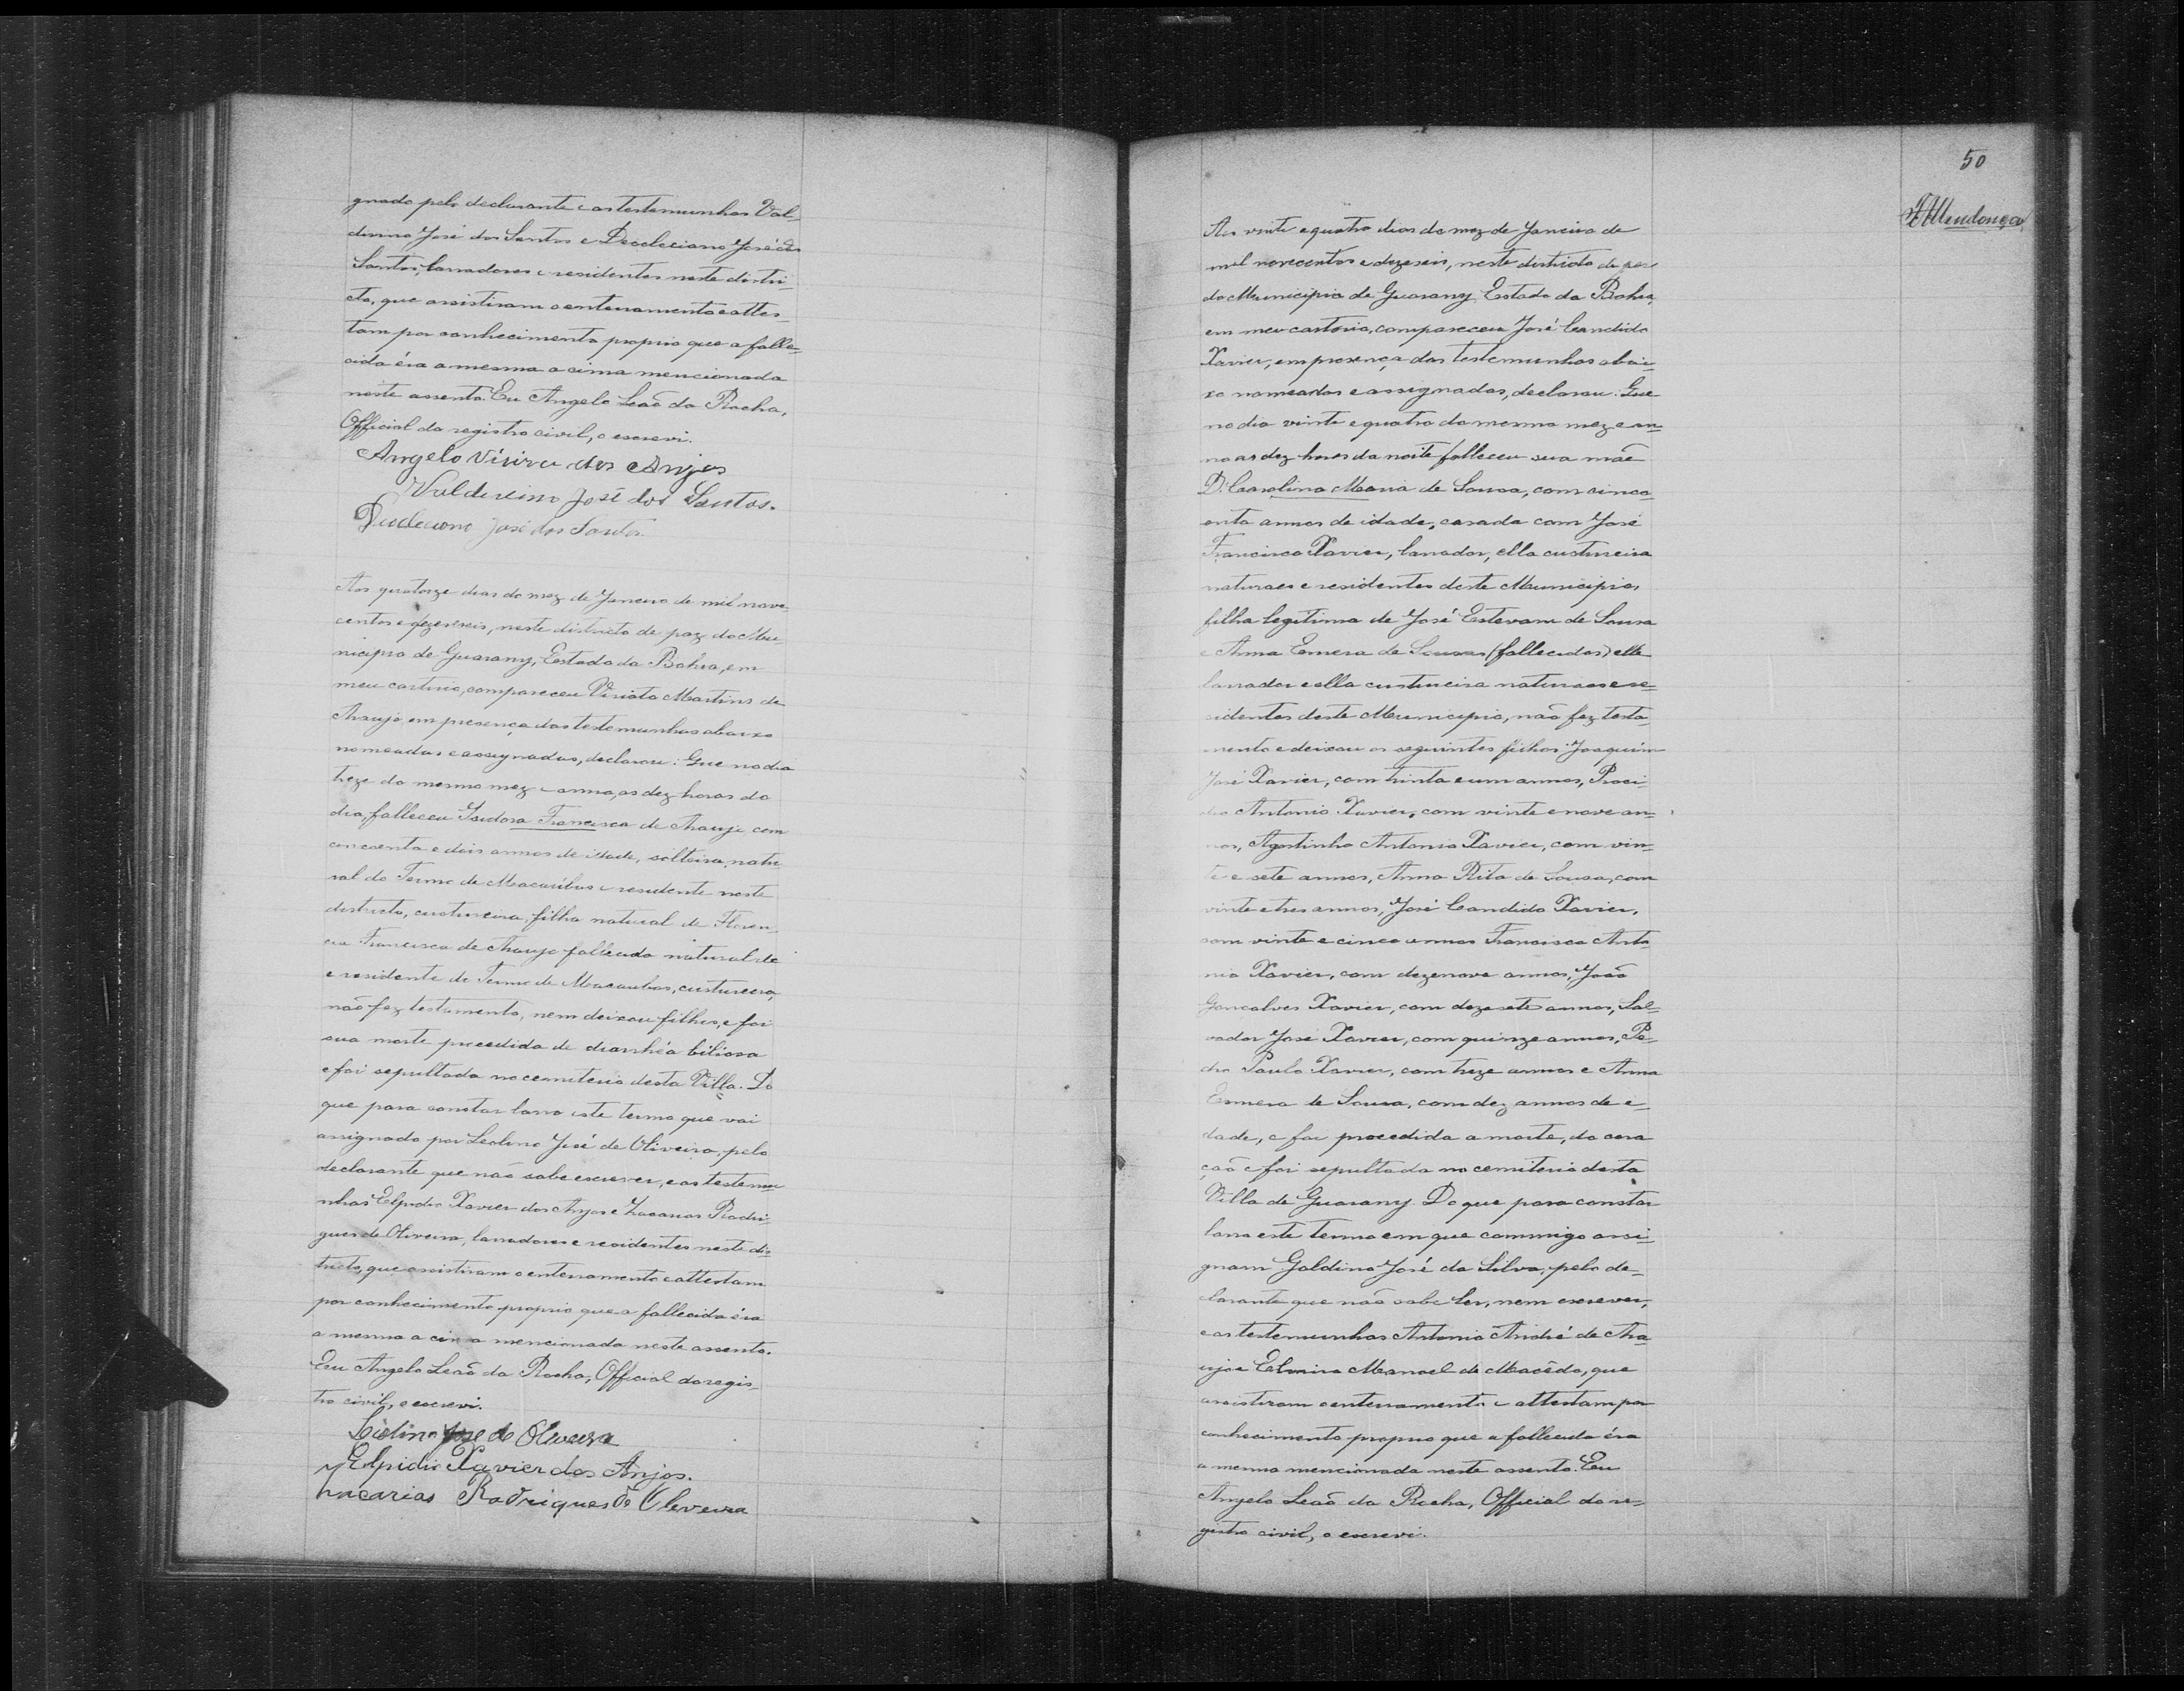 gnado pelo declarante e as testemunhas Val-
divino José dos Santos e Deocleciano José dos
Santos, lavradores e residentes neste distri-
cto, que assistiram o enterramento e attes-
tam por conhecimento proprio que a falle-
cida éra a mesma a cima mencionada
neste assento. Eu Angelo Leaõ da Rocha,
Official do registro civil, o escrevi.
Angelo Vieira dos Anjos
Valdivino José dos Santos.
José dos Santos
Aos quatorze dias do mez de Janeiro de mil nove-
centos e dezeseis, neste districto de paz do Mu-
nicipio de Guarany, Estado da Bahia, em
meu cartorio, compareceu Viriato Martins de
Araujo, em presença das testemunhas abaixo
nomeadas e assignadas, declarou: Que no dia
treze do mesmo mez e anno, as dez horas do
dia, falleceu Izidora Francisca de Araujo, com
concoenta e dois annos de idade, solteira, natu-
ral do Termo de Macaúbas e residente neste
districto, custureira, filha natural de Floren-
cia Francisca de Araujo fallecida natural de
e residente do Termo de Macaubas, custureira,
naõ fez testamento, nem deixou filhos, e foi
sua morte precedida de diarrhéa biliosa
e foi sepultada no cemiterio desta Villa. Do
que para constar lavro este termo que vai
assignado por Leolino José de Oliveira, pelo
declarante que naõ sabe escrever, e as testemu-
nhas Elpidio Xavier dos Anjos e Zacarias Rodri-
gues de Oliveira, lavradores e residentes neste dis-
tricto, que assistiram o enterramento e attestam
por conhecimento proprio que a fallecida éra
a mesma a cima mencionada neste assento.
Eu Angelo Leaõ da Rocha, Official do regis-
tro civil, o escrevi.
Liolino Jose de Oliveira
Elpidio Xavier dos Anjos.
Zacarias Rodrigues de Oleveira
50
Mendonça
Aos vinte e quatro dias do mez de Janeiro de
mil novecentos e dezeseis, neste districto de paz
do Municipio de Guarany, Estado da Bahia,
em meu cartorio, compareceu José Candido
Xavier, em presença das testemunhas abai-
xo nomeadas e assignadas, declarou: Que
no dia vinte e quatro do mesmo mez e an-
no as dez horas da noite falleceu sua mãe
D. Carolina Maria de Sousa, com cinco-
enta annos de idade, casada com José
Francisco Xavier, lavrador, ella custureira
naturaes e residentes deste Municipio,
filha legitima de José Estevam de Sousa
e Anna Emera de Sousa (fallecidos) elle
lavrador e ella custureira naturaes e re-
sidentes deste Municipio, naõ fez testa-
mento e deixou os seguintes filhos: Joaquim
José Xavier, com trinta e um annos, Proci-
dio Antonio Xavier, com vinte e nove an-
nos, Agostinho Antonio Xavier, com vin-
te e sete annos, Anna Rita de Sousa, com
vinte e tres annos, José Candido Xavier,
com vinte e cinco annos Francisco Anto-
nio Xavier, com dezenove annos, Joaõ
Goncalves Xavier, com dezesete annos, Sal-
vador José Xavier, com quinze annos, Pe-
dro Paulo Xavier, com treze annos e Anna
Emera de Sousa, com dez annos de e-
dade, e foi procedida a morte, do cora
çaõ e foi sepultada no cemiterio desta
Villa de Guarany. Do que para constar
lavro este termo em que commigo assi-
gnam Galdino José da Silva, pelo de-
clarante que naõ sabe ler, nem escrever,
e as testemunhas Antonio André de Ara-
ujo e Elmiro Manoel de Macêdo, que
assistiram o enterramento e attestam por
conhecimento proprio que a fallecida éra
a mesma mencionada neste assento. Eu
Angelo Leaõ da Rocha, Official do re-
gistro civil, o escrevi.